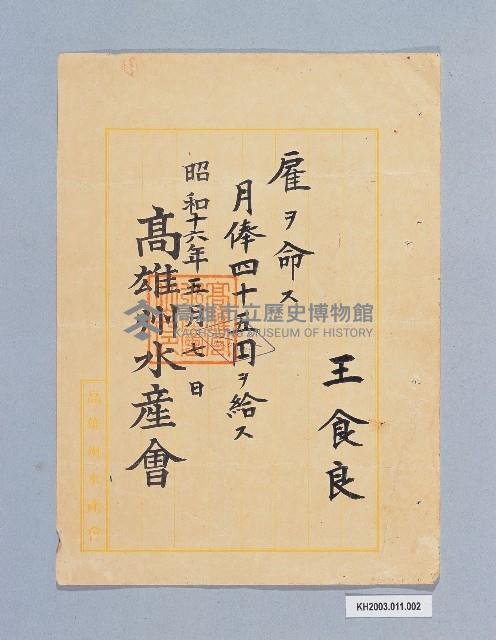 王食良
雇ヲ命ス
月俸四十五円ヲ給ス
昭和十六年五月七日
高雄州水產會
高雄州水產會
高雄市立歷史博物館
KAOHSIUNG MUSEUM OF HISTORY
KH2003.011.002